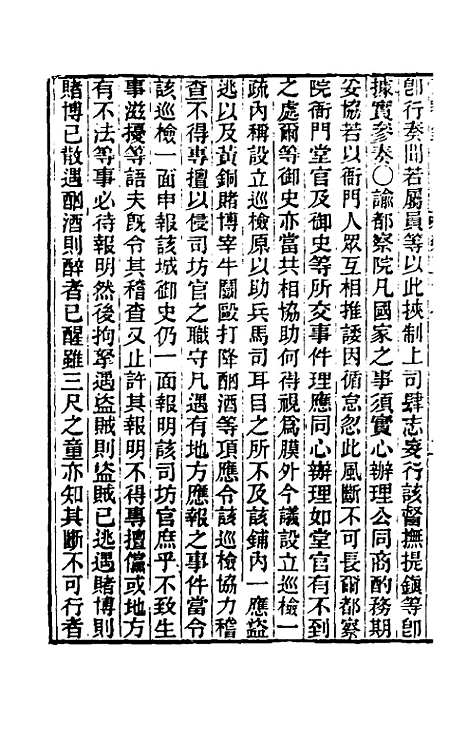 卽行奏聞若屬員等以此挾制上司肆志妄行該督撫提鎭等卽
據實參奏〇諭都察院凡國家之事須實心辦理公同商酌務期
妥協若以衙門人眾互相推諉因循怠忽此風斷不可長爾都察
院衙門堂官及御史等所交事件理應同心辦理如堂官有不到
之處爾等御史亦當共相協助何得視爲膜外今議設立巡檢一
疏內稱設立巡檢原以助兵馬司耳目之所不及該鋪內一應盜
逃以及黃銅賭博宰牛鬬毆打降酗酒等項應令該巡檢協力稽
查不得專擅以侵司坊官之職守凡遇有地方應報之事件當令
該巡檢一面申報該城御史仍一面報明該司坊官庶乎不致生
事滋擾等語夫旣令其稽查又止許其報明不得專擅儻或地方
有不法等事必待報明然後拘拏遇盜賊則盜賊已逃遇賭博則
賭博已散遇酗酒則醉者已醒雖三尺之童亦知其斷不可行者